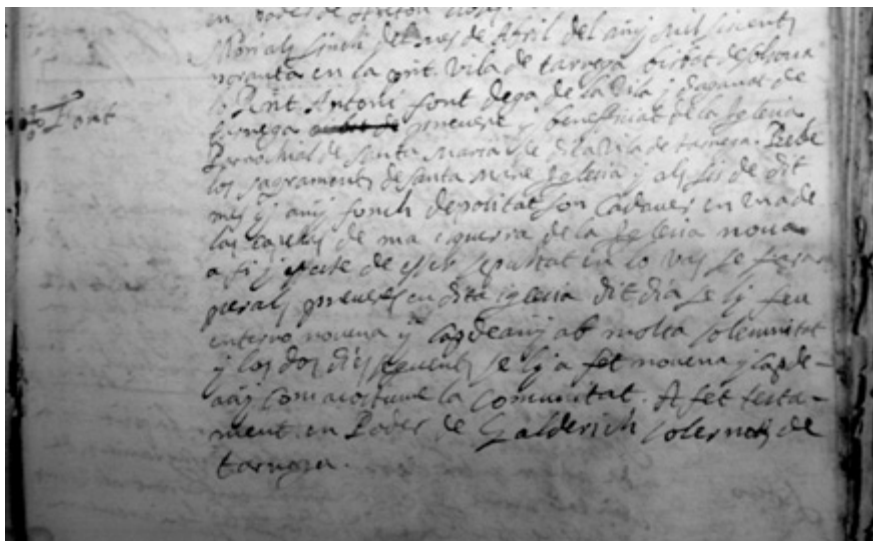 en poder de
Mori als sinch del mes de Abril del any mil siscents
noranta en la pnt. Vila de tarrega bisbat de solsona
lo Rnt. Antoni font dega de la Vila y deganat de
tarrega prevere y beneficiat de la Iglesia
Parrochial de Santa Maria de dita Vila de tarrega. Rebe
los sagraments de santa mare Iglesia y als sis de dit
mes y any fonch depositat son Cadaver en una de
las capellas de ma esquerra de la Iglesia nova
a fi y efecte de esser sepultat en lo vas se fara
perals preveres en dita iglesia dit dia se li feu
enterro novena y capdeany ab molta solemnitat
y los dos dies seguents se ly a fet novena y capde-
any com acostuma la Comunitat. A fet testa-
ment en Poder de Galderich solernou de
tarrega.
Font